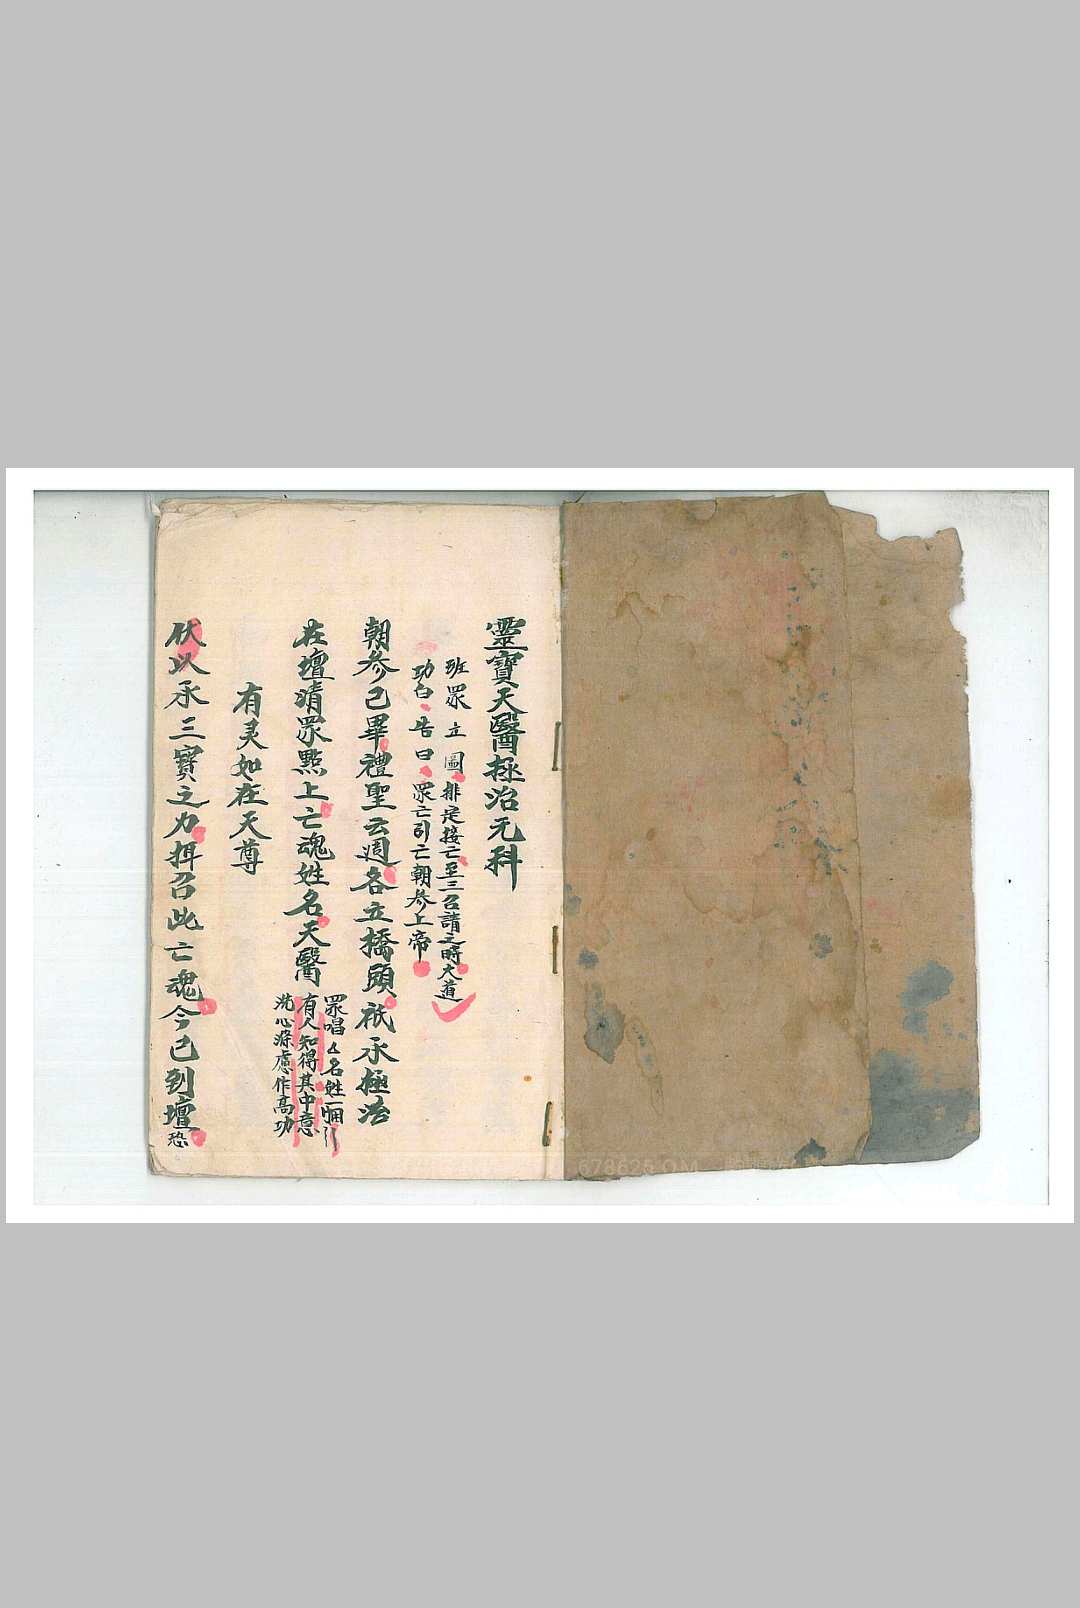 靈寶天醫拯治元科
班眾立圖排定接亡至三召請之時大道
功白告曰眾亡引亡朝參上帝
朝參已畢禮聖云週各立橋頭祇承拯治
在壇清眾點上亡魂姓名天醫
眾唱么名姓
有人知得其中意
洗心滌慮作高功
有灵如在天尊
伏以承三寶之力拜召此亡魂今已到壇恐